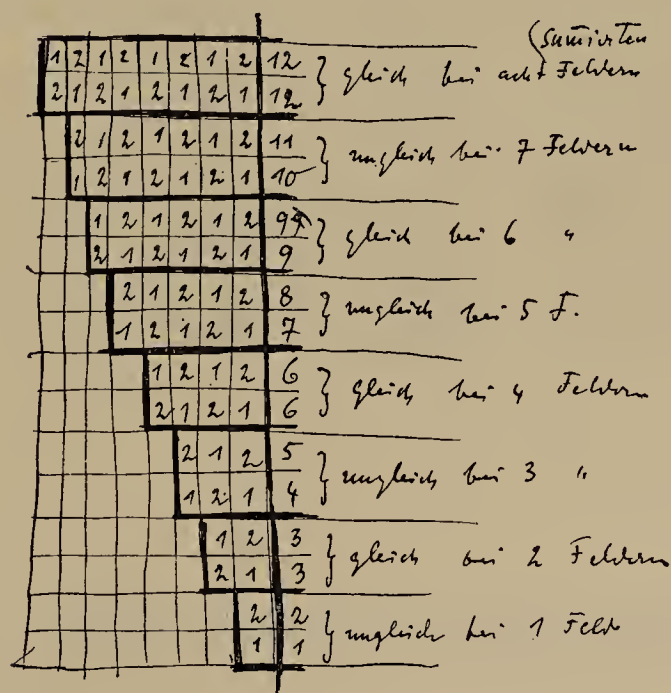 (Sumirten
1 2 1 2 1 2 1 2 12 } gleich bei acht Feldern
2 1 2 1 2 1 2 1 12
2 1 2 1 2 1 2 11 } ungleich bei 7 Feldern
1 2 1 2 1 2 1 10
1 2 1 2 1 2 9 } gleich bei 6 "
2 1 2 1 2 1 9
2 1 2 1 2 8 } ungleich bei 5 F.
1 2 1 2 1 7
1 2 1 2 6 } gleich bei 4 Feldern
2 1 2 1 6
2 1 2 5 } ungleich bei 3 "
1 2 1 4
1 2 3 } gleich bei 2 Feldern
2 1 3
2 2 } ungleich bei 1 Feld
1 1